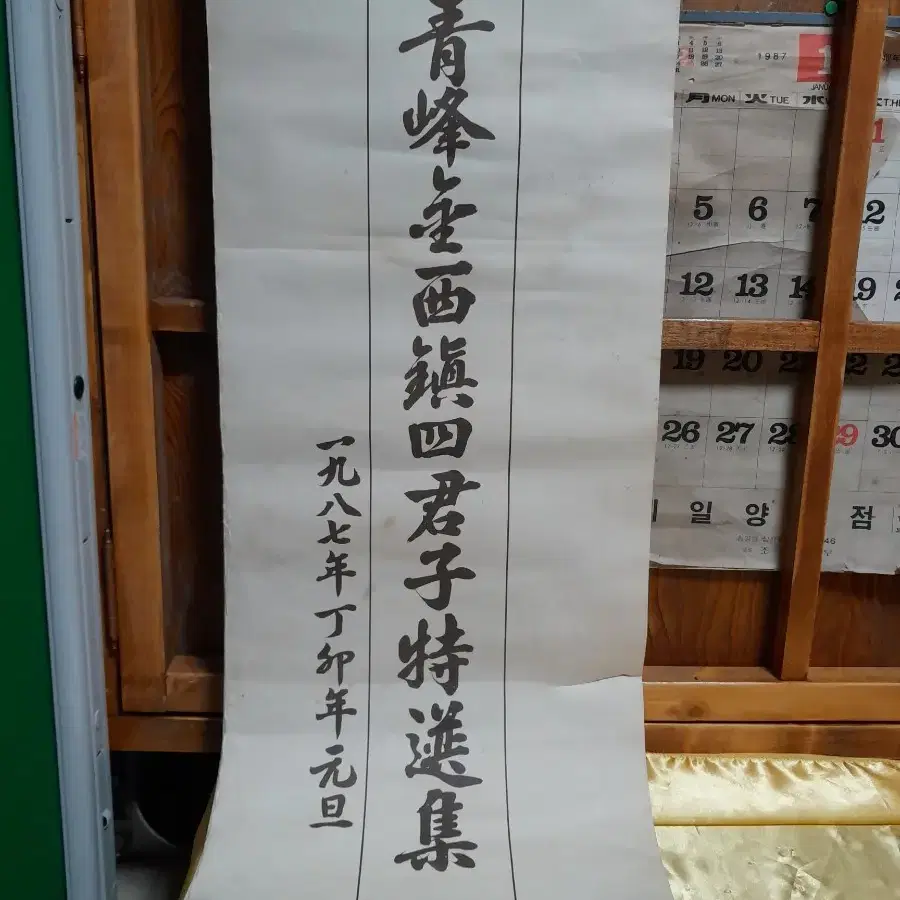 青峰金西鎮四君子特選集
一九八七年丁卯年元旦
1987
月MON 火TUE 水
5 6 7
12 13 14 19
19 20 21
26 27 28 29 30
일 양 점
46